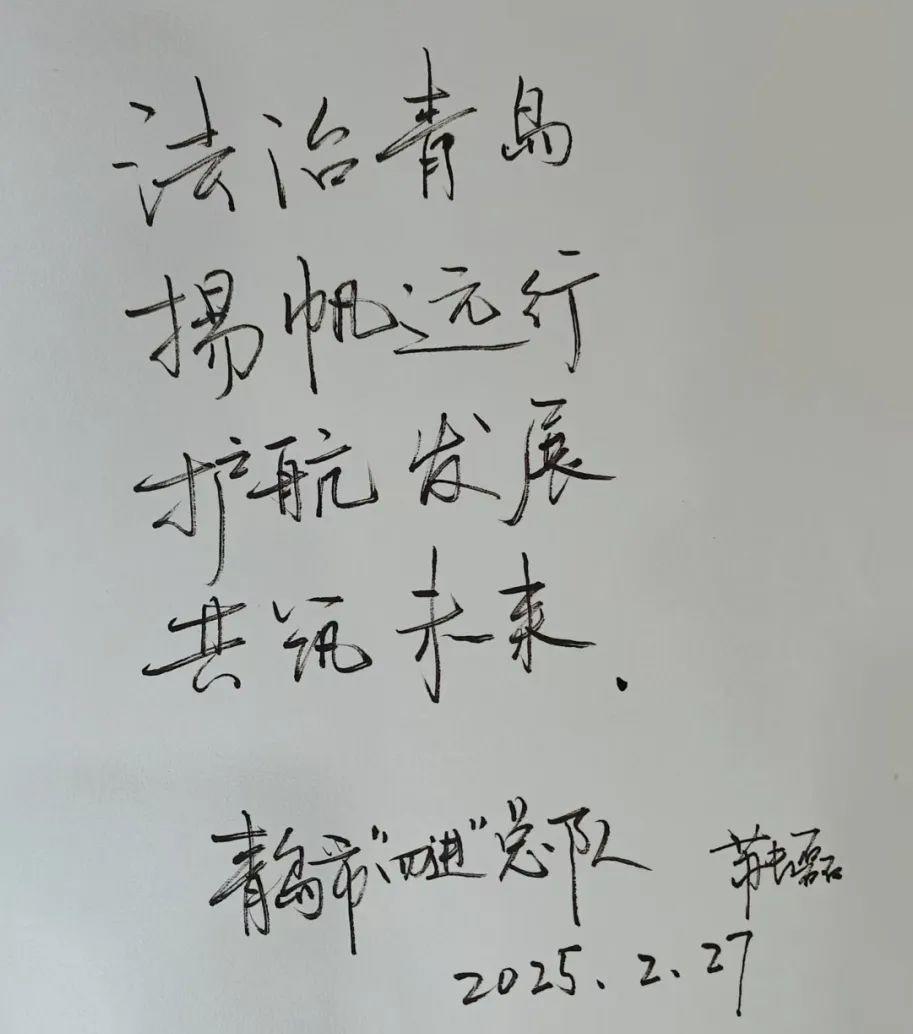 法治青岛
揚帆远行
护航发展
共筑未来.
青岛市“四进”总队
2025.2.27